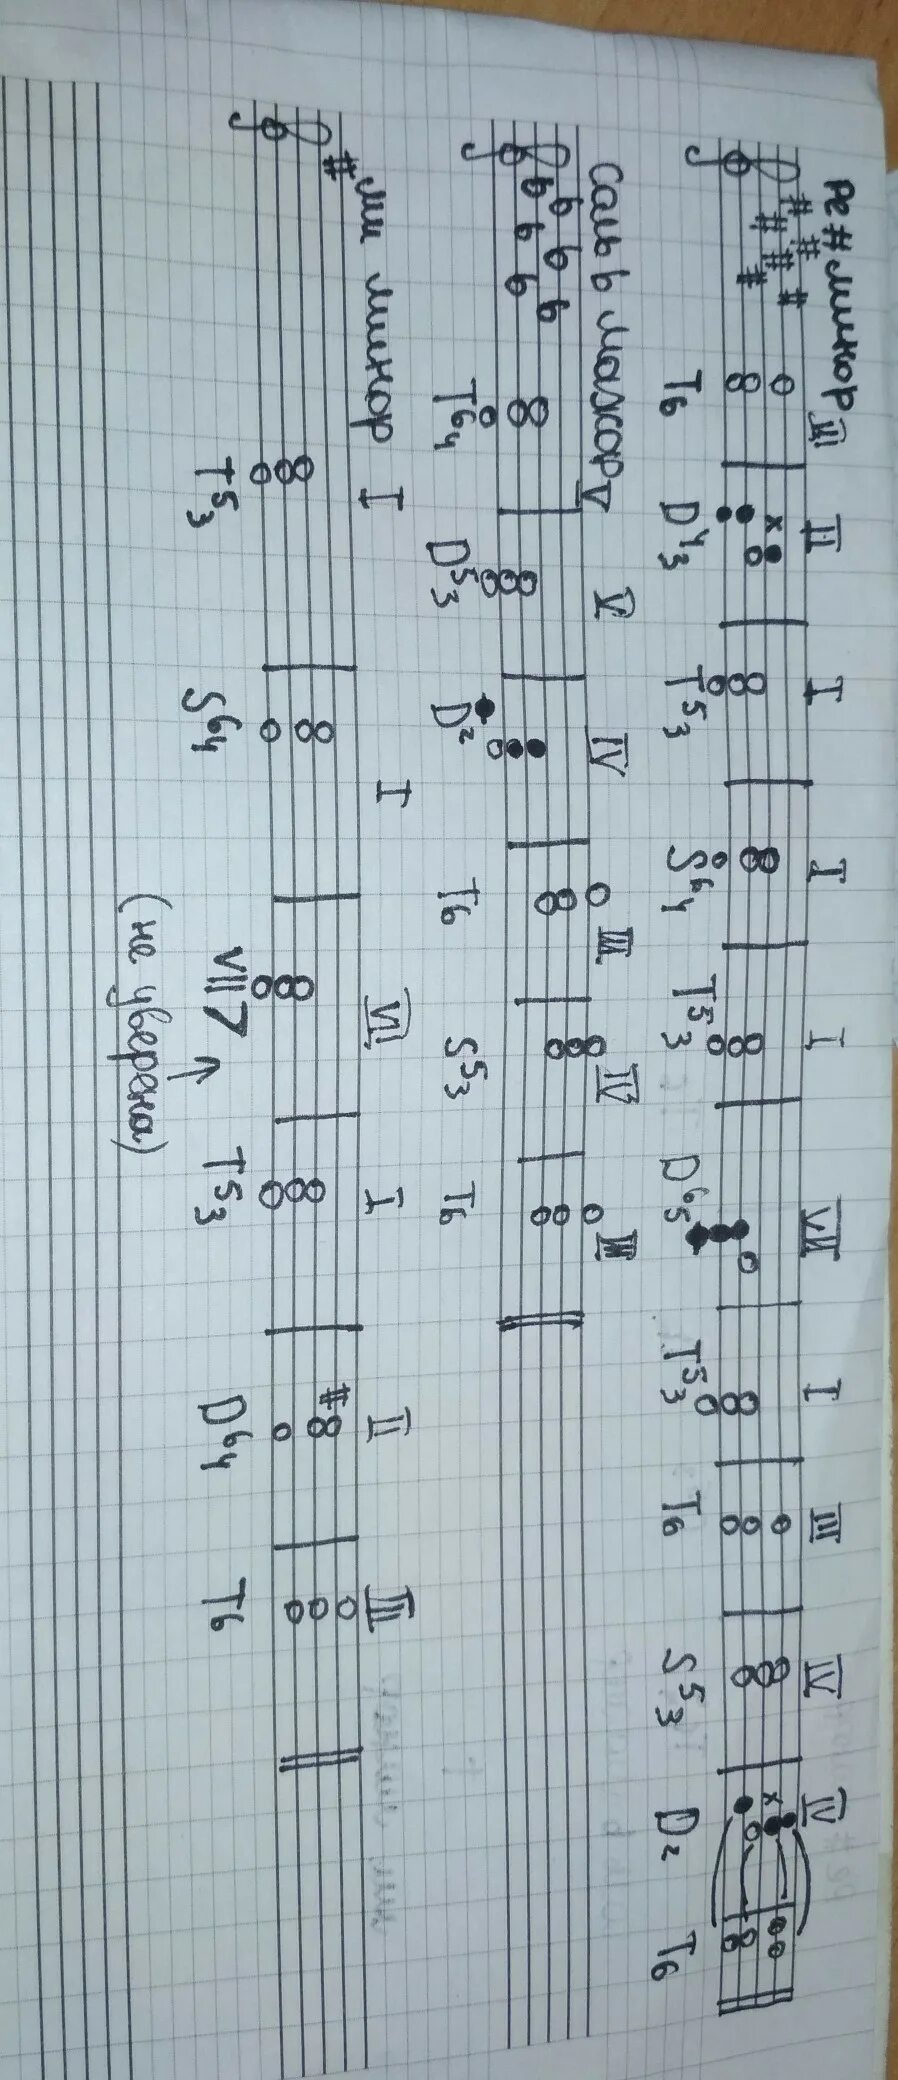 ре# минор III II I I I VII I III IV IV
T6 D43 T53 S64 T53 D65 T53 T6 S53 D2 T6
Соль b мажор V V IV III IV III
T64 D53 D2 T6 S53 T6
ми минор I I VII I II III
T53 S64 VII7 T53 D64 T6
(не уверена)